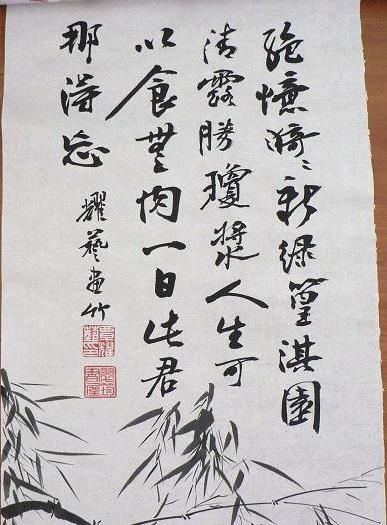 絕憶漪〻新綠篁淇園
清露勝瓊漿人生可
以食無肉一日此君
那得忘
耀藝畫竹